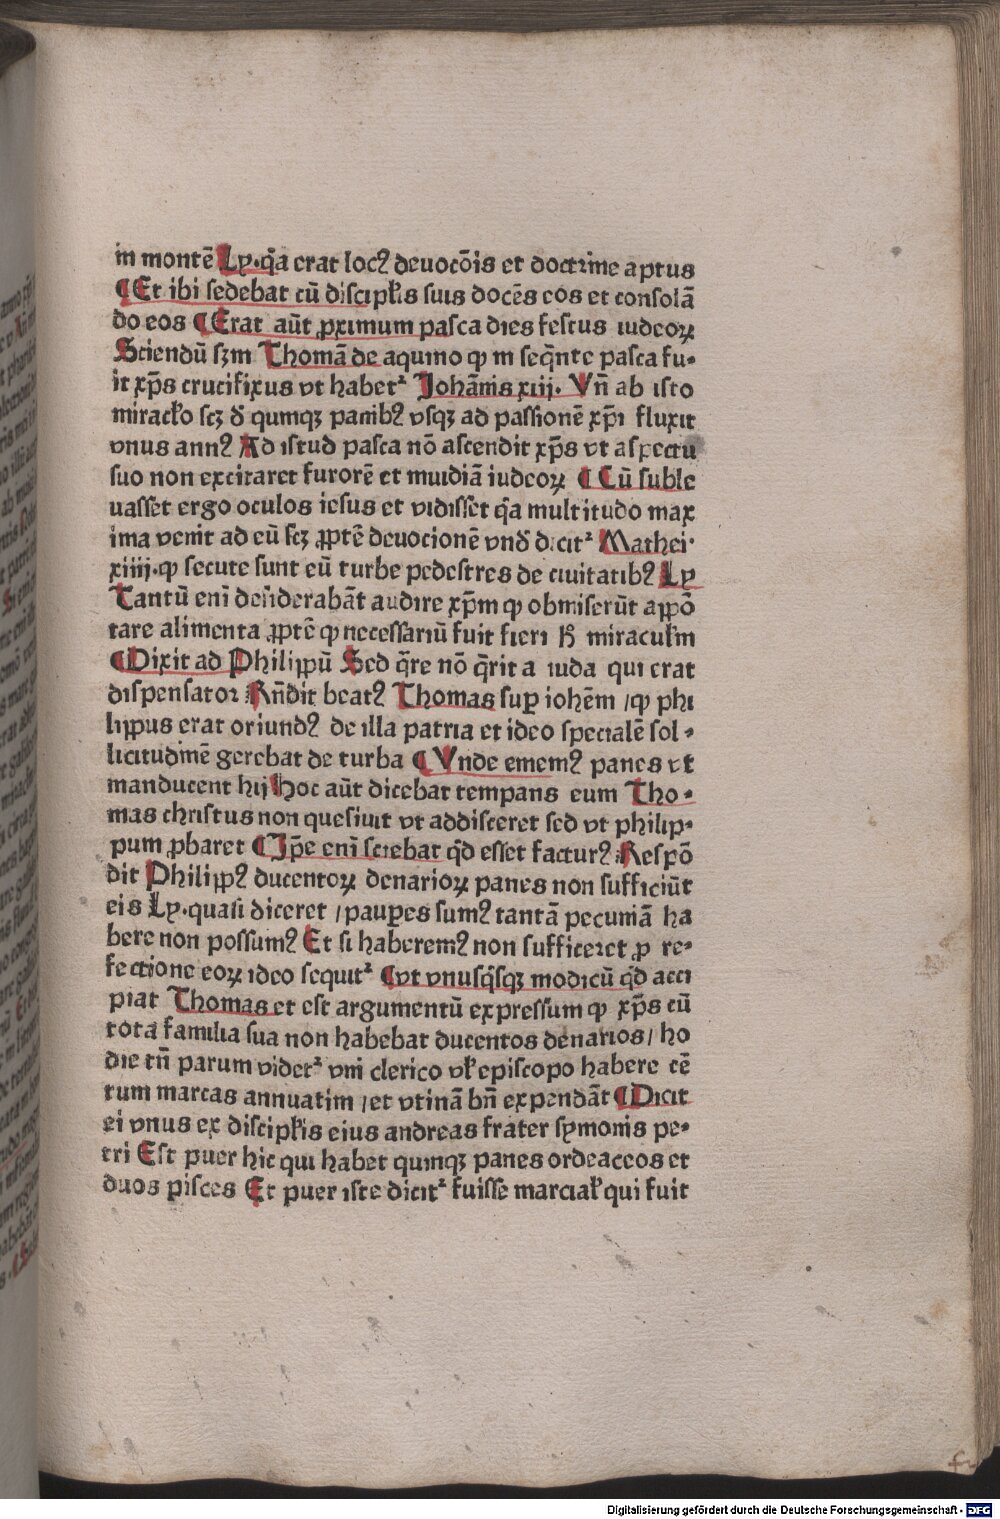 in montē Ly. q̄a erat locꝰ deuocōis et doctrine aptus
¶ Et ibi sedebat cū discipl̕is suis docēs eos et consolā
do eos ¶ Erat aūt ꝓximum pasca dies festus iudeoꝝ
Sciendū sꝫm Thomā de aquino ꝙ in seq̄nte pasca fu⸗
it xp̄s crucifixus vt habetᷣ Johānis xiij. Vn̄ ab isto
miracl̕o scꝫ d̕ quinqꝫ panibꝰ vsqꝫ ad passionē xp̄i fluxit
vnus annꝰ Ad istud pasca nō ascendit xp̄s vt aspectu
suo non excitaret furorē et inuidiā iudeoꝝ ¶ Cū suble
uasset ergo oculos iesus et vidisset q̄a multitudo max
ima venit ad eū scꝫ ꝓptē deuocionē vnd̕ dicitᷣ Mathei
xiiij. ꝙ secute sunt eū turbe pedestres de ciuitatibꝰ Ly
Tantū eni̅ desiderabāt audire xp̄m ꝙ obmiserūt appō
tare alimenta ꝓptē ꝙ necessariū fuit fieri h̕ miracul̕m
¶ Dixit ad Philippū Sed q̄re nō q̄rit a iuda qui erat
dispensator Rn̄dit beatꝰ Thomas suꝑ iohēm / ꝙ phi
lippus erat oriundꝰ de illa patria et ideo specialē sol⸗
licitudinē gerebat de turba ¶ Vnde ememꝰ panes vt
manducent hij Hoc aūt dicebat temptans eum Tho⸗
mas christus non quesiuit vt addisceret sed vt philip⸗
pum ꝓbaret ¶ Ip̄e eni̅ sciebat qd̄ esset facturꝰ Respō
dit Philippꝰ ducentoꝝ denarioꝝ panes non sufficiūt
eis Ly. quasi diceret / pauꝑes sumꝰ tantā pecuniā ha
bere non possumꝰ Et si haberemꝰ non sufficeret ꝓ re⸗
fectione eoꝝ ideo sequitᷣ ¶ vt vnusq̄sqꝫ modicū qd̄ acci
piat Thomas et est argumentū expressum ꝙ xp̄s cū
tota familia sua non habebat ducentos denarios / ho
die tn̄ parum videtᷣ vni clerico vl̕ episcopo habere cē
tum marcas annuatim / et vtinā bn̄ expendāt ¶ Dicit
ei vnus ex discipl̕is eius andreas frater symonis pe⸗
tri Est puer hic qui habet quinqꝫ panes ordeaceos et
duos pisces Et puer iste dicitᷣ fuisse marcial̕ qui fuit
Digitalisierung gefördert durch die Deutsche Forschungsgemeinschaft - DFG